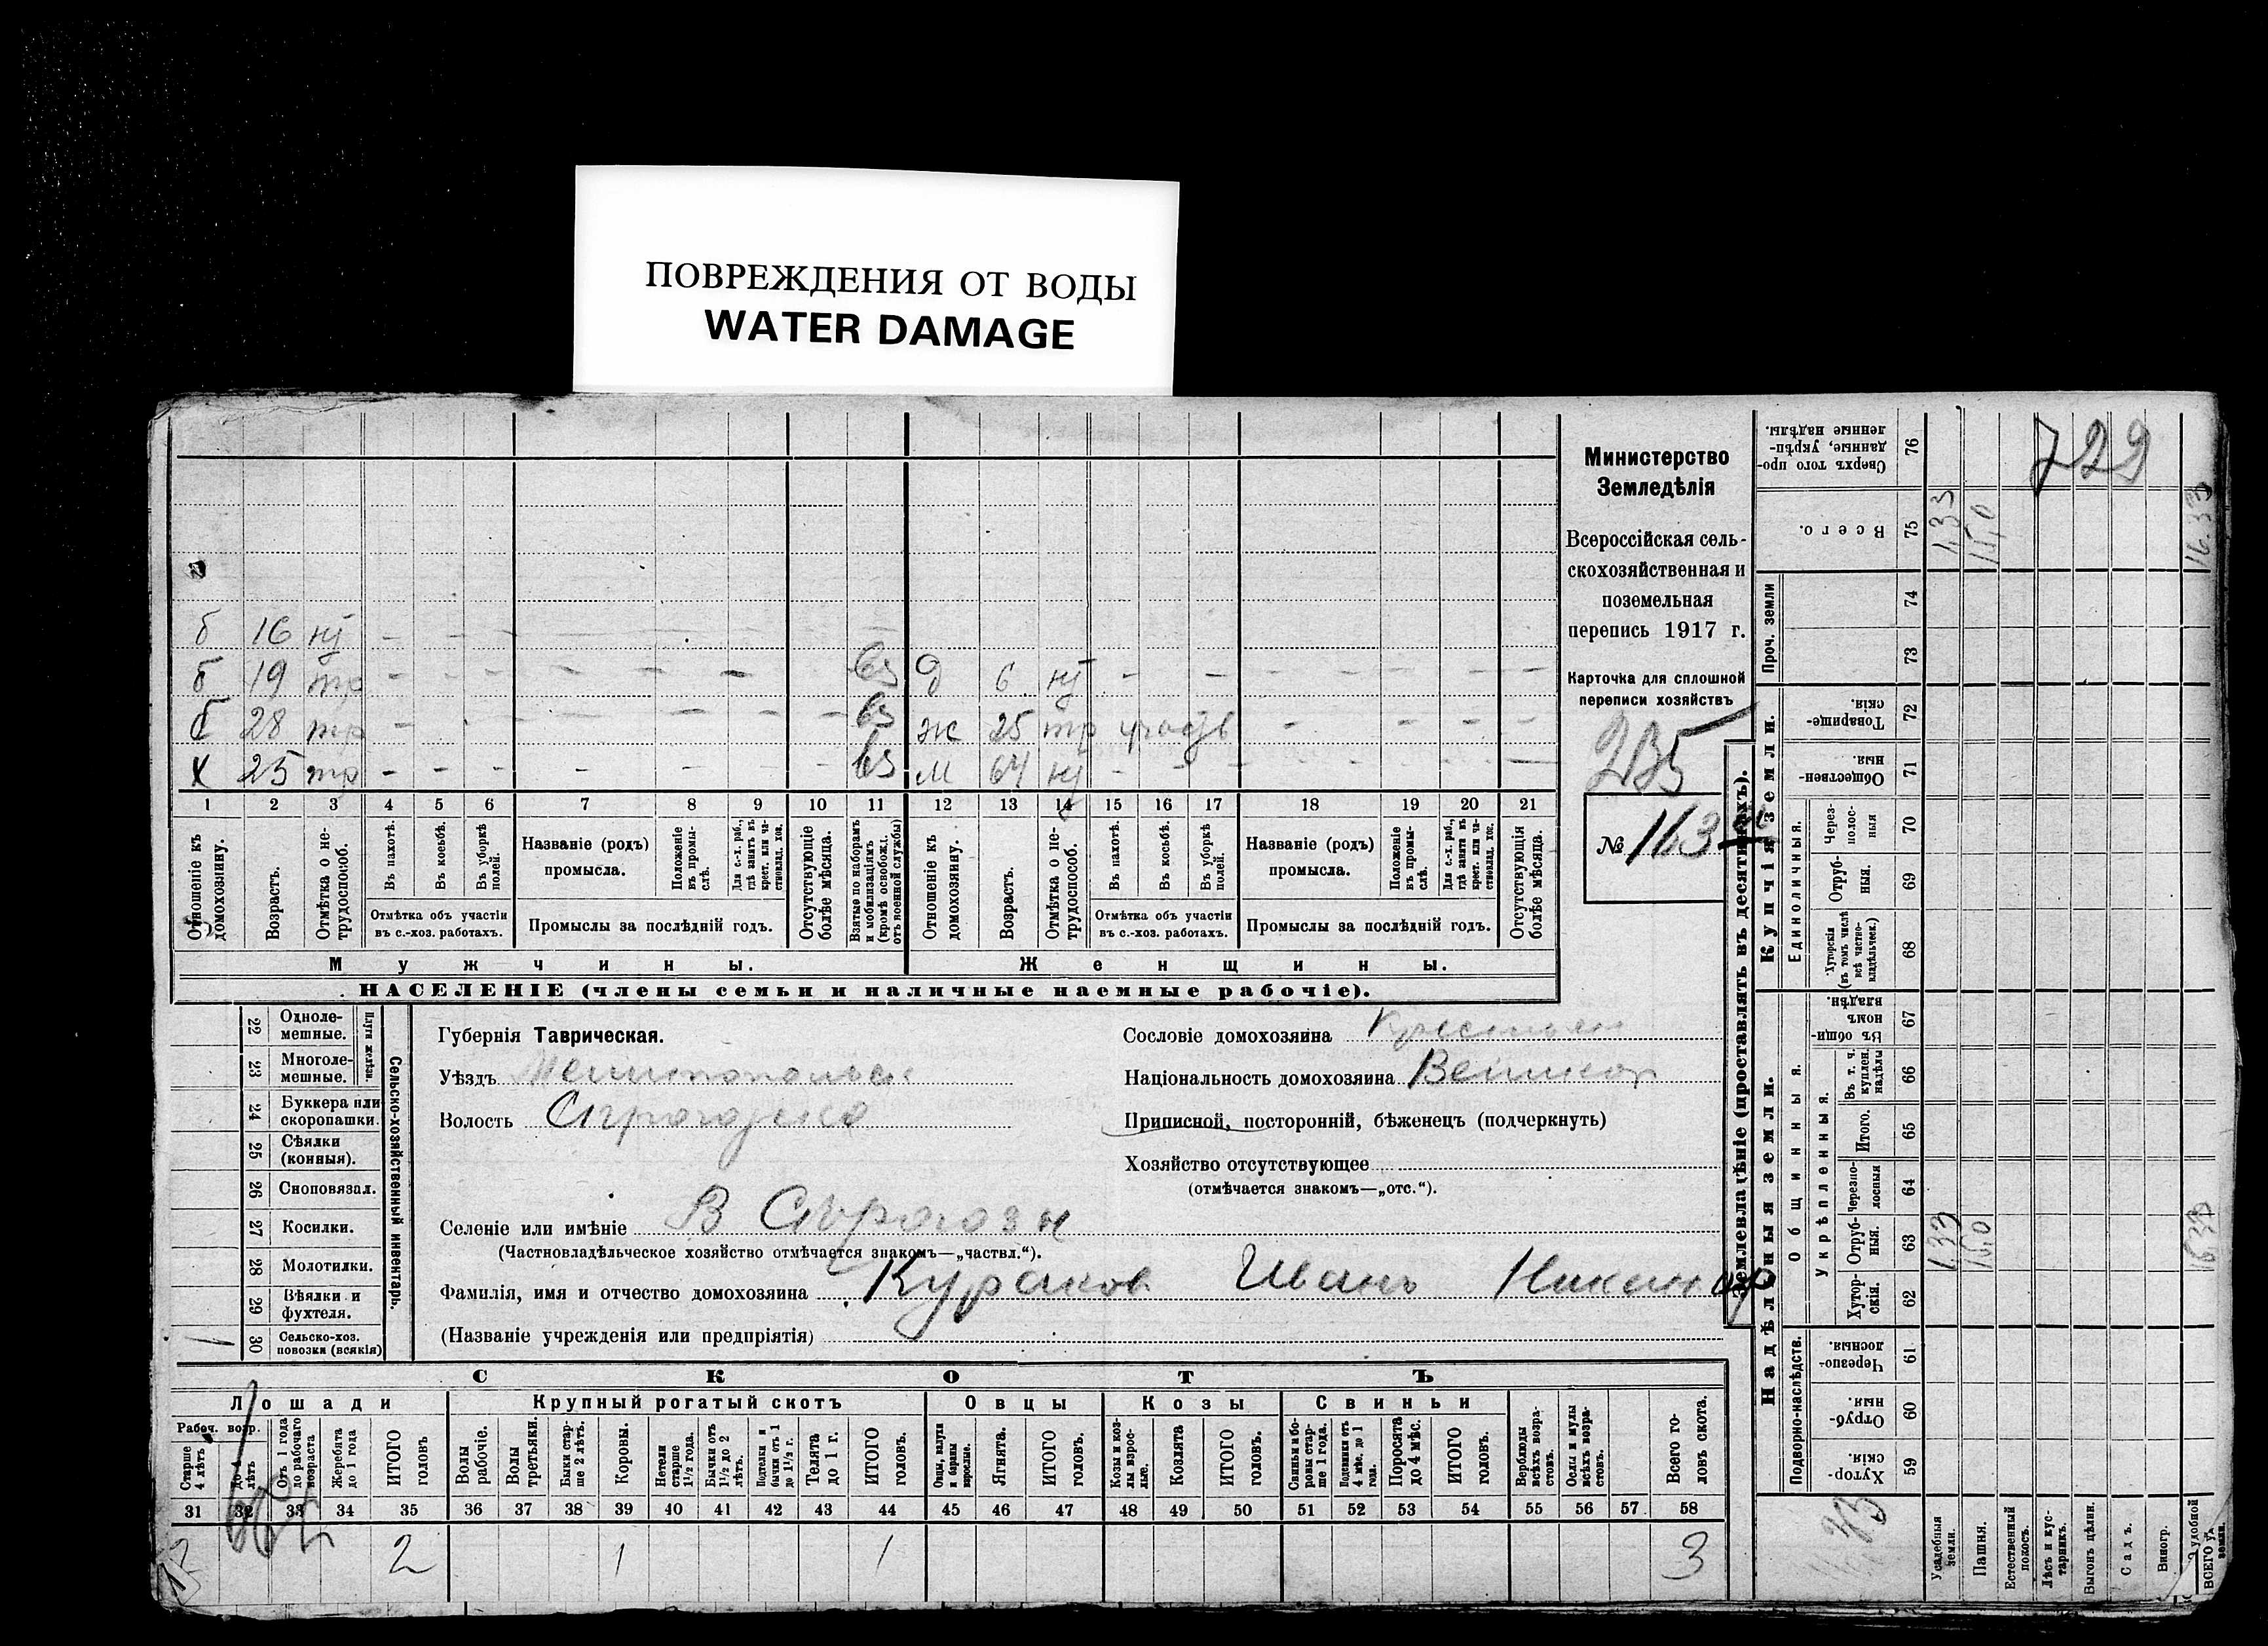 ПОВРЕЖДЕНИЯ ОТ ВОДЫ
WATER DAMAGE
б 16 нт - -
б 19 тр - - - - - - -
б 28 тр - - - - -
Х 25 тр - - - - - - -
д 6 нт - - - - - - -
ж 25 тр - - - -
м 64 нт - - - - - -
1 2 3 4 5 6 7 8 9 10 11 12 13 14 15 16 17 18 19 20 21
Отношеніе къ домохозяину.
Возрастъ.
Отмѣтка о не-трудоспособ.
Въ пахотѣ.
Въ косьбѣ.
Въ уборкѣ полей.
Отмѣтка объ участіи въ с.-хоз. работахъ.
Названіе (родъ) промысла.
Положеніе въ промы-слѣ.
Для с.-х. раб., гдѣ занятъ въ крест. или ча-стновлад. хоз.
Промыслы за послѣдній годъ.
Отсутствующіе болѣе мѣсяца.
Взятые по наборамъ и мобилизаціямъ (кромѣ освобожд. отъ военной службы)
Отношеніе къ домохозяину.
Возрастъ.
Отмѣтка о не-трудоспособ.
Въ пахотѣ.
Въ косьбѣ.
Въ уборкѣ полей.
Отмѣтка объ участіи въ с.-хоз. работахъ.
Названіе (родъ) промысла.
Положеніе въ промы-слѣ.
Для с.-х. раб., гдѣ занята въ крест. или ча-стновлад. хоз.
Промыслы за послѣдній годъ.
Отсутствующія болѣе мѣсяца.
Мужчины.
Женщины.
НАСЕЛЕНІЕ (члены семьи и наличные наемные рабочіе).
Министерство
Земледѣлія
Всероссійская сель-
скохозяйственная и
поземельная
перепись 1917 г.
Карточка для сплошной
переписи хозяйствъ
235
№ 163
22 Одноле-мешные.
23 Многоле-мешные.
Плуги желѣзн.
24 Буккера или скоропашки.
25 Сѣялки (конныя).
26 Сноповязал.
27 Косилки.
28 Молотилки.
29 Вѣялки и фухтеля.
30 Сельско-хоз. повозки (всякія)
Сельско-хозяйственный инвентарь.
Губернія Таврическая.
Уѣздъ
Волость
Селеніе или имѣніе В Сѣрогозы
(Частновладѣльческое хозяйство отмѣчается знакомъ—„частвл.“).
Фамилія, имя и отчество домохозяина Кураков Иванъ
(Названіе учрежденія или предпріятія)
Сословіе домохозяина
Національность домохозяина Великор
Приписной, посторонній, бѣженецъ (подчеркнуть)
Хозяйство отсутствующее
(отмѣчается знакомъ—„отс.“).
СКОТЪ
Лошади
Крупный рогатый скотъ
Овцы
Козы
Свиньи
Рабоч. возр.
Старше 4 лѣтъ
До 4 лѣтъ
Отъ 1 года до рабочаго возраста
Жеребята до 1 года
ИТОГО головъ
Волы рабочіе.
Волы третьяки.
Быки стар-ше 2 лѣтъ.
Коровы.
Нетели старше 1½ года.
Бычки отъ 1½ до 2 лѣтъ.
Подтелки и бычки отъ 1 до 1½ г.
Телята до 1 г.
ИТОГО головъ.
Овцы, валухи и бараны взрослые.
Ягнята.
ИТОГО головъ.
Козы и коз-лы взрос-лые.
Козлята
ИТОГО головъ.
Свиньи и бо-ровы стар-ше 1 года.
Подсвинки отъ 4 мѣс. до 1 года.
Поросята до 4 мѣс.
ИТОГО головъ.
Верблюды всѣхъ возра-стовъ.
Ослы и мулы всѣхъ возра-стовъ.
Всего го-ловъ скота.
31 32 33 34 35 36 37 38 39 40 41 42 43 44 45 46 47 48 49 50 51 52 53 54 55 56 57 58
2 1 1 3
Землевладѣніе (проставлять въ десятинахъ).
Надѣльныя земли.
Купчія земли.
Проч. земли
Подворно-наслѣдств.
Общинныя.
Укрѣпленныя.
Единоличныя.
Хутор-скія. 59
Отруб-ныя. 60
Черезпо-лосныя 61
Хутор-скія. 62
Отруб-ныя. 63
Черезпо-лосныя 64
Итого. 65
Въ т. ч. куплен. надѣлы 66
Въ общин-номъ владѣн. 67
Хуторскія (въ томъ числѣ всѣ частно-владѣльческ.) 68
Отруб-ныя. 69
Через-полос-ныя 70
Обществен-ныя. 71
Товарище-скія. 72
73
74
Всего. 75
Сверхъ того про-данные, укрѣп-ленные надѣлы. 76
729
1,33
15,0
16.33
1,33
15,0
16.33
Усадебныя земли.
Пашня.
Естественный покосъ.
Лѣсъ и кус-тарникъ.
Выгонъ цѣлин.
Садъ.
Виногр.
ВСЕГО удобной земли.